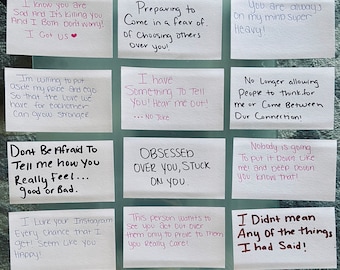 I know you are
Sad And Its killing you
And I Both Dont Worry!
I Got Us
Preparing to
Come in a fear of.
of Choosing others
Over you!
You are always
on my mind Super
Heavy!
Im willing to put
aside my pride and ego
So that the love we
have for eachother
Can grow stronger
I have
Something To Tell
You! Hear me out!
... No Joke
No Longer allowing
People to think for
me or Come Between
Our Connection!
Dont Be Afraid To
Tell me how You
Really Feel...
Good or Bad.
OBSESSED
OVER YOU, STUCK
ON YOU.
Nobody is going
to put it Down Like
me! and Deep Down
you know that!
I Lurk your Instagram
Every Chance that I
get! Seem Like you
Happy!
This person wants to
see you act out over
them only to prove to them
You Really Care!
I Didnt mean
Any of the things
I had Said!